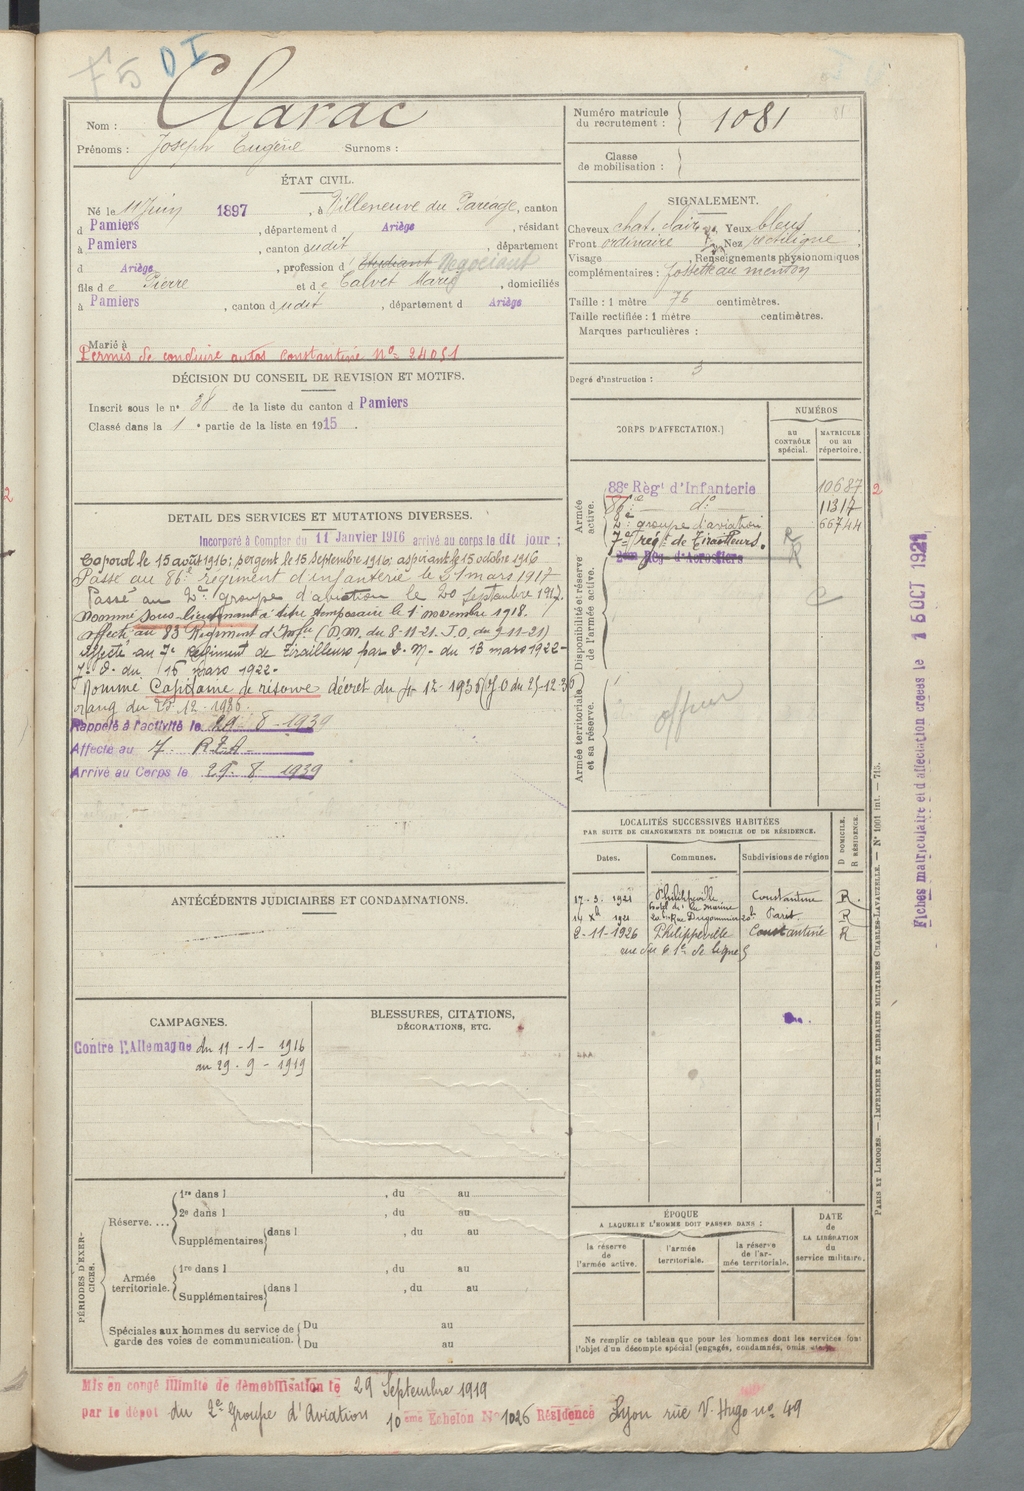 F5 DI
Nom : Clarac
Prénoms : Joseph Eugène Surnoms :
ÉTAT CIVIL.
Né le 11 Juin 1897, à Villeneuve du Pareage, canton
d Pamiers, département d Ariège, résidant
à Pamiers, canton dudit, département
d Ariège, profession d' Etudiant Négociant
fils de Pierre et de Calvet Marie, domiciliés
à Pamiers, canton dudit, département d Ariège
Marié à
Permis de conduire autos Constantine No 24051
DÉCISION DU CONSEIL DE REVISION ET MOTIFS.
Inscrit sous le no 38 de la liste du canton d Pamiers
Classé dans la 1e partie de la liste en 1915.
DETAIL DES SERVICES ET MUTATIONS DIVERSES.
Incorporé à Compter du 11 Janvier 1916 arrivé au corps le dit jour ;
Caporal le 15 août 1916; sergent le 15 Septembre 1916; aspirant le 15 octobre 1916
Passé au 86e régiment d'infanterie le 31 mars 1917
Passé au 2e groupe d'aviation le 20 Septembre 1917.
Nommé sous-lieutenant à titre temporaire le 1er novembre 1918.
Affecté au 83 Régiment d'Infie (D.M. du 8-11-21. J.O. du 9-11-21)
Affecté au 7e Régiment de Tirailleurs par D. M. du 13 mars 1922-
J. O. du 16 mars 1922-
Nommé Capitaine de réserve décret du 12-1936 (J.O du 25-12-36)
rang du 25 12-1936.
Rappelé à l'activité le 29-8-1939
Affecté au 7. R.T.A.
Arrivé au Corps le 29-8 1939
ANTÉCÉDENTS JUDICIAIRES ET CONDAMNATIONS.
CAMPAGNES.
Contre l'Allemagne du 11-1-1916
au 29-9-1919
BLESSURES, CITATIONS,
DÉCORATIONS, ETC.
PÉRIODES D'EXERCICES.
Réserve....
1re dans l , du au
2e dans l , du au
Supplémentaires dans l , du au
Armée territoriale.
1re dans l , du au
Supplémentaires dans l , du au
Spéciales aux hommes du service de garde des voies de communication.
Du au
Du au
Numéro matricule
du recrutement : 1081
81
Classe
de mobilisation :
SIGNALEMENT.
Cheveux chat. clair Yeux bleus
Front ordinaire Nez rectiligne
Visage , Renseignements physionomiques
complémentaires : fossette au menton
Taille : 1 mètre 76 centimètres.
Taille rectifiée : 1 mètre centimètres.
Marques particulières :
Degré d'instruction : 3
CORPS D'AFFECTATION.
NUMÉROS
AU CONTRÔLE spécial.
MATRICULE ou au répertoire.
Armée active.
88e Régt d'Infanterie 10687 2
86e do 11317
2e groupe d'aviation 66744
7e régt de Tirailleurs. R
R
Disponibilité et réserve de l'armée active.
Armée territoriale et sa réserve.
officier
LOCALITÉS SUCCESSIVES HABITÉES
PAR SUITE DE CHANGEMENTS DE DOMICILE OU DE RÉSIDENCE.
D DOMICILE.
R RÉSIDENCE.
Dates. Communes. Subdivisions de région
17-3. 1921 Philippeville Constantine R.
Hotel de la Marine
14 Xbre 1921 Rue Dugommier Paris R
2-11-1926 Philippeville Constantine R
rue du 61e de ligne 5
ÉPOQUE
A LAQUELLE L'HOMME DOIT PASSER DANS :
la réserve de l'armée active.
l'armée territoriale.
la réserve de l'armée territoriale.
DATE de LA LIBÉRATION du service militaire.
Ne remplir ce tableau que pour les hommes dont les services font
l'objet d'un décompte spécial (engagés, condamnés, omis
Mis en congé illimité de démobilisation le 29 Septembre 1919
par le dépôt du 2e Groupe d'Aviation 10ème Echelon No 1026 Résidence Lyon rue V. Hugo no 49
PARIS ET LIMOGES. — IMPRIMERIE ET LIBRAIRIE MILITAIRES CHARLES-LAVAUZELLE. — No 1001 int. — 715.
Fiches matriculaire et d'affectation créées le 16 OCT 1921
2